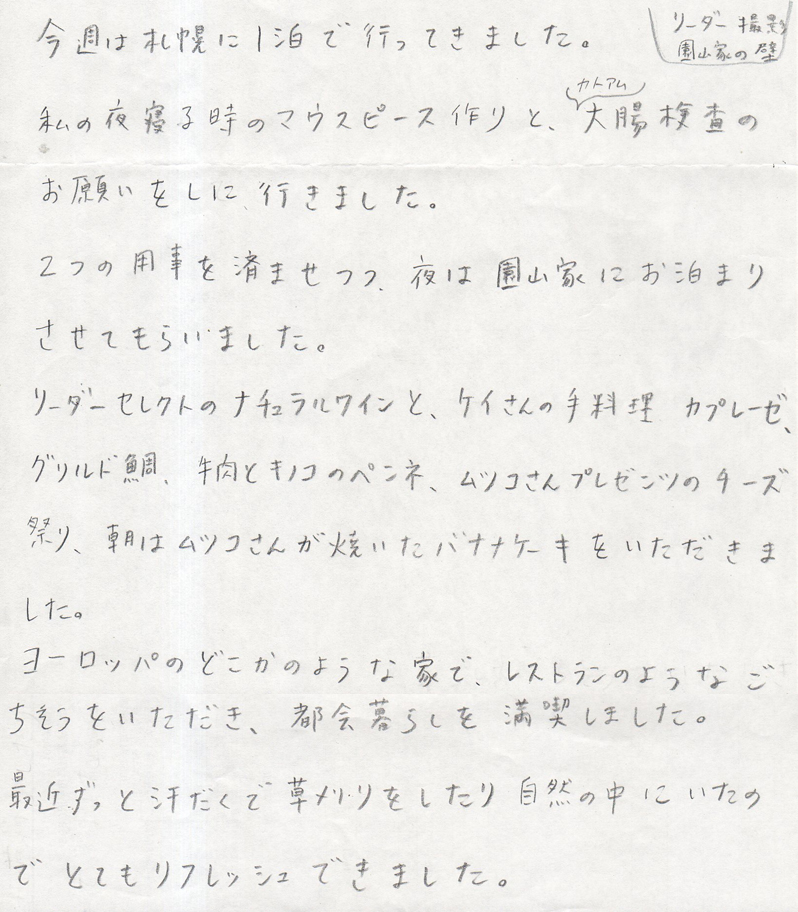 リーダー撮影
園山家の壁
今週は札幌に1泊で行ってきました。
カトアム
私の夜寝る時のマウスピース作りと、大腸検査の
お願いをしに、行きました。
2つの用事を済ませつつ、夜は園山家にお泊まり
させてもらいました。
リーダーセレクトのナチュラルワインと、ケイさんの手料理 カプレーゼ、
グリルド鯛、牛肉とキノコのペンネ、ムツコさんプレゼンツのチーズ
祭り、朝はムツコさんが焼いたバナナケーキをいただきま
した。
ヨーロッパのどこかのような家で、レストランのようなご
ちそうをいただき、都会暮らしを満喫しました。
最近ずっと汗だくで草刈りをしたり自然の中にいたの
でとてもリフレッシュできました。